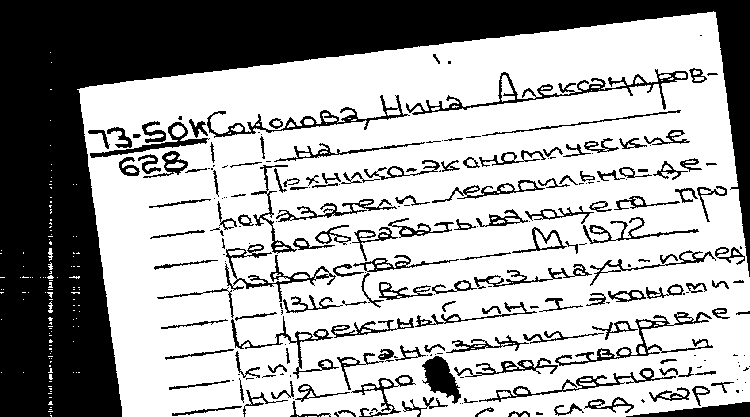 73-50К Соколова, Нина Александров-
628
на.
Технико-экономические
показатели лесопильно-де-
ревообрабатывающего про-
изводства. М., 1972
131с. (Всесоюз. науч.-исслед.
и проектный ин-т экономи-
ки, организации управле-
ния про изводством и
по лесной,
См. след. карт.